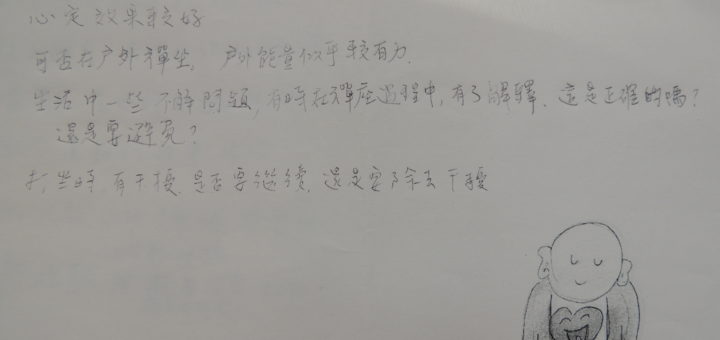 心定效果較好
可否在户外禪坐, 户外能量似乎較有力.
生活中一些不解問題, 有時在禪座過程中, 有了解釋. 這是正確的嗎?
還是要避免?
打坐時有干擾, 是否要繼續, 還是要除去干擾